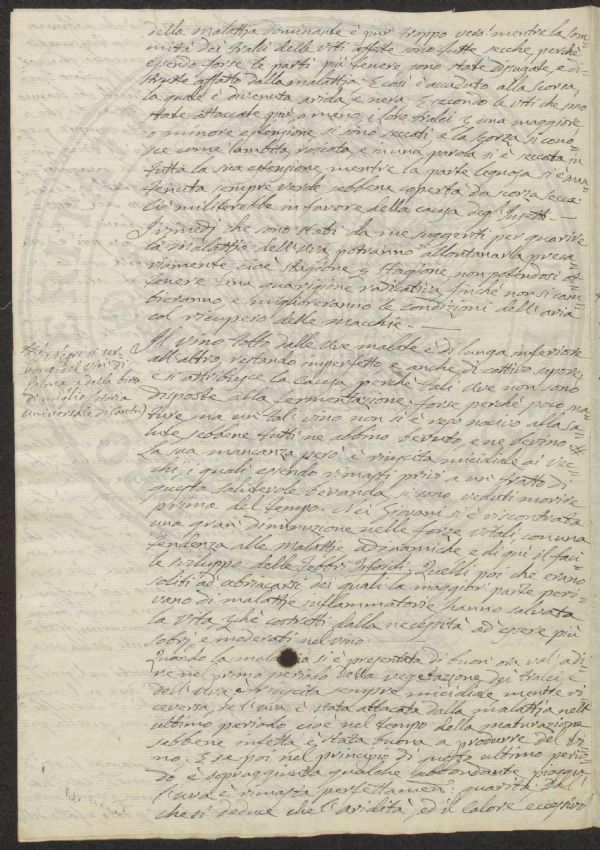 della malattia dominante è pur troppo vero: mentre la som=
mità dei tralci delle viti affette sono tutte secche, perchè
essendo forse le parti più tenere sono state disugate, e di=
strutte affatto dalla malattia. E così è accaduto alla scorza,
la quale è divenuta arida, e nera. E secondo le viti che sono
state attaccate più, o meno, i loro tralci a una maggiore
o minore estensione si sono seccati, e la scorza si cono=
sce come lambita, rosicata e in una parola si è seccata in
tutta la sua estensione, mentre la parte legnosa si è man=
tenuta sempre verde, sebbene coperta da scorza secca.
Ciò militerebbe in favore della causa degl'Insetti. —
I rimedj che sono stati da me suggeriti per guarire
la malattia dell'Uva potranno allontanarla preca=
riamente cioè stagione p. stagione, non potendosi ot=
tenere una guarigione radicativa, finchè non si cam=
bieranno, e miglioreranno le condizioni dell'aria
col ricupero delle macchie. —
Il vino tolto dalle Uve malate è di lunga inferiore
all'altro, restando imperfetto, e anche di cattivo sapore,
e si attribuisce la causa, perchè tali Uve non sono
disposte alla fermentazione, forse perchè poco ma=
ture ma un tal vino non si è reso nocivo alla sa=
lute sebbene tutti ne abbino bevuto, e ne bevino.
La sua mancanza però è riuscita micidiale ai Vec=
chi, i quali essendo rimasti privi a un tratto di
questa salutevole bevanda, si sono veduti morire
prima del tempo. Nei Giovani si è riscontrata
una gran diminuzione nelle forze vitali, con una
tendenza alle Malattie adinamiche, e di qui il faci=
le sviluppo delle Febbri Tifoidi. Quelli poi che erano
soliti ad ubriacarsi dei quali la maggior parte peri=
vano di malattie inflammatorie hanno salvata
la vita, perchè costretti dalla necessità ad essere più
sobrj, e moderati nel vino.
Quando la malattia si è presentata di buon'ora val'a di=
re nel primo periodo della vegetazione dei tralci, e
dell'Uve è riuscita sempre micidiale mentre vi=
ceversa se l'uva è stata attaccata dalla malattia nell'
ultimo periodo cioè nel tempo della maturazione
sebbene infetta è stata buona a produrre del vi=
no. E se poi nel principio di questo ultimo perio=
do è sopraggiunta qualche abbondante pioggia
l'uva è rimasta perfettamen: guarita. Dal
che si deduce che l'aridità, ed il calore eccessivo
vino dei vini di
di miglio
universale